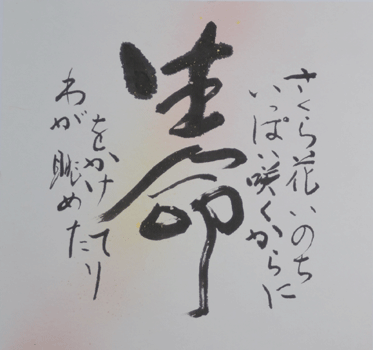 さくら花いのち
いっぱい咲くからに
生命
をかけて
わが眺めたり